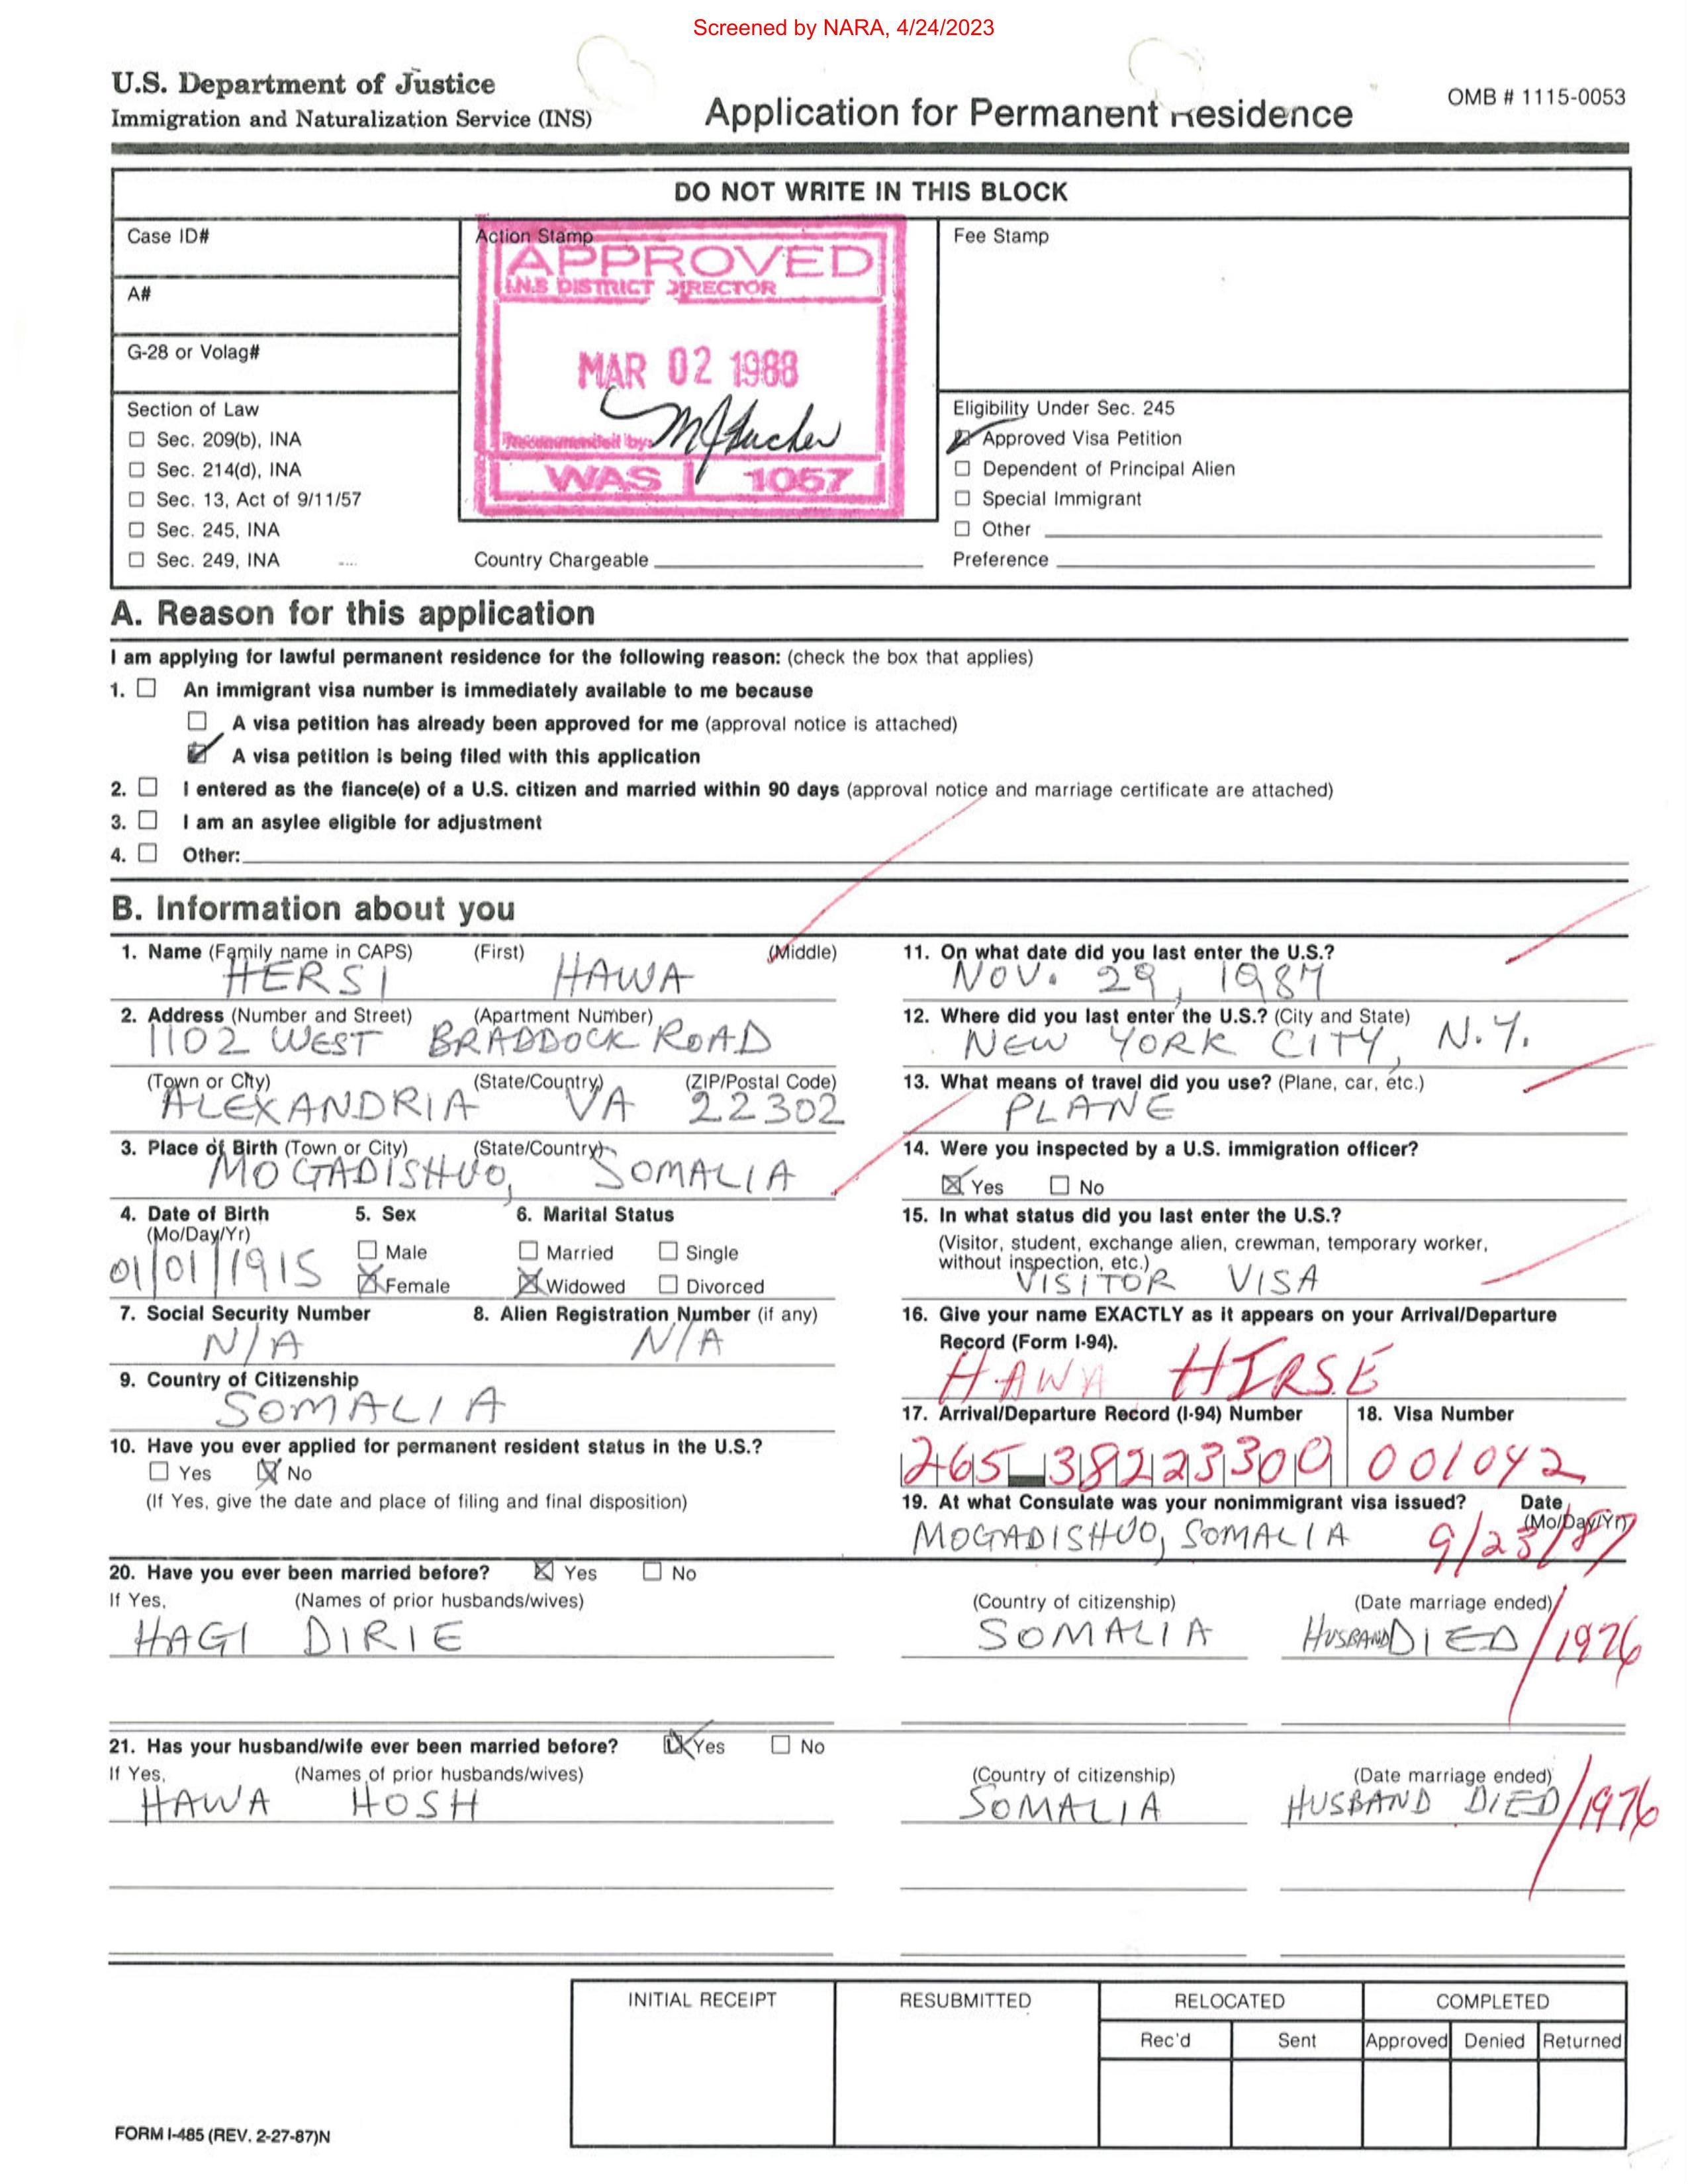 Screened by NARA, 4/24/2023
U.S. Department of Justice
Immigration and Naturalization Service (INS)
Application for Permanent Residence
OMB # 1115-0053
DO NOT WRITE IN THIS BLOCK
Case ID#
Action Stamp
Fee Stamp
APPROVED
I.N.S DISTRICT DIRECTOR
A#
G-28 or Volag#
MAR 02 1988
Recommended by:
WAS 1057
Section of Law
☐ Sec. 209(b), INA
☐ Sec. 214(d), INA
☐ Sec. 13, Act of 9/11/57
☐ Sec. 245, INA
☐ Sec. 249, INA
Country Chargeable
Eligibility Under Sec. 245
☑ Approved Visa Petition
☐ Dependent of Principal Alien
☐ Special Immigrant
☐ Other
Preference
A. Reason for this application
I am applying for lawful permanent residence for the following reason: (check the box that applies)
1. ☐ An immigrant visa number is immediately available to me because
☐ A visa petition has already been approved for me (approval notice is attached)
☑ A visa petition is being filed with this application
2. ☐ I entered as the fiance(e) of a U.S. citizen and married within 90 days (approval notice and marriage certificate are attached)
3. ☐ I am an asylee eligible for adjustment
4. ☐ Other:
B. Information about you
1. Name (Family name in CAPS) (First) (Middle)
HERSI HAWA
2. Address (Number and Street) (Apartment Number)
1102 WEST BRADDOCK ROAD
(Town or City) (State/Country) (ZIP/Postal Code)
ALEXANDRIA VA 22302
3. Place of Birth (Town or City) (State/Country)
MOGADISHUO, SOMALIA
4. Date of Birth 5. Sex 6. Marital Status
(Mo/Day/Yr)
☐ Male ☐ Married ☐ Single
01/01/1915
☒ Female ☒ Widowed ☐ Divorced
7. Social Security Number 8. Alien Registration Number (if any)
N/A N/A
9. Country of Citizenship
SOMALIA
10. Have you ever applied for permanent resident status in the U.S.?
☐ Yes ☒ No
(If Yes, give the date and place of filing and final disposition)
11. On what date did you last enter the U.S.?
NOV. 29, 1987
12. Where did you last enter the U.S.? (City and State)
NEW YORK CITY, N.Y.
13. What means of travel did you use? (Plane, car, etc.)
PLANE
14. Were you inspected by a U.S. immigration officer?
☒ Yes ☐ No
15. In what status did you last enter the U.S.?
(Visitor, student, exchange alien, crewman, temporary worker,
without inspection, etc.)
VISITOR VISA
16. Give your name EXACTLY as it appears on your Arrival/Departure
Record (Form I-94).
HAWA HIRSE
17. Arrival/Departure Record (I-94) Number 18. Visa Number
265 38223300 001042
19. At what Consulate was your nonimmigrant visa issued? Date
(Mo/Day/Yr)
MOGADISHUO, SOMALIA 9/23/87
20. Have you ever been married before? ☒ Yes ☐ No
If Yes, (Names of prior husbands/wives) (Country of citizenship) (Date marriage ended)
HAGI DIRIE SOMALIA HUSBAND DIED/1976
21. Has your husband/wife ever been married before? ☒ Yes ☐ No
If Yes, (Names of prior husbands/wives) (Country of citizenship) (Date marriage ended)
HAWA HOSH SOMALIA HUSBAND DIED/1976
INITIAL RECEIPT RESUBMITTED RELOCATED COMPLETED
Rec'd Sent Approved Denied Returned
FORM I-485 (REV. 2-27-87)N